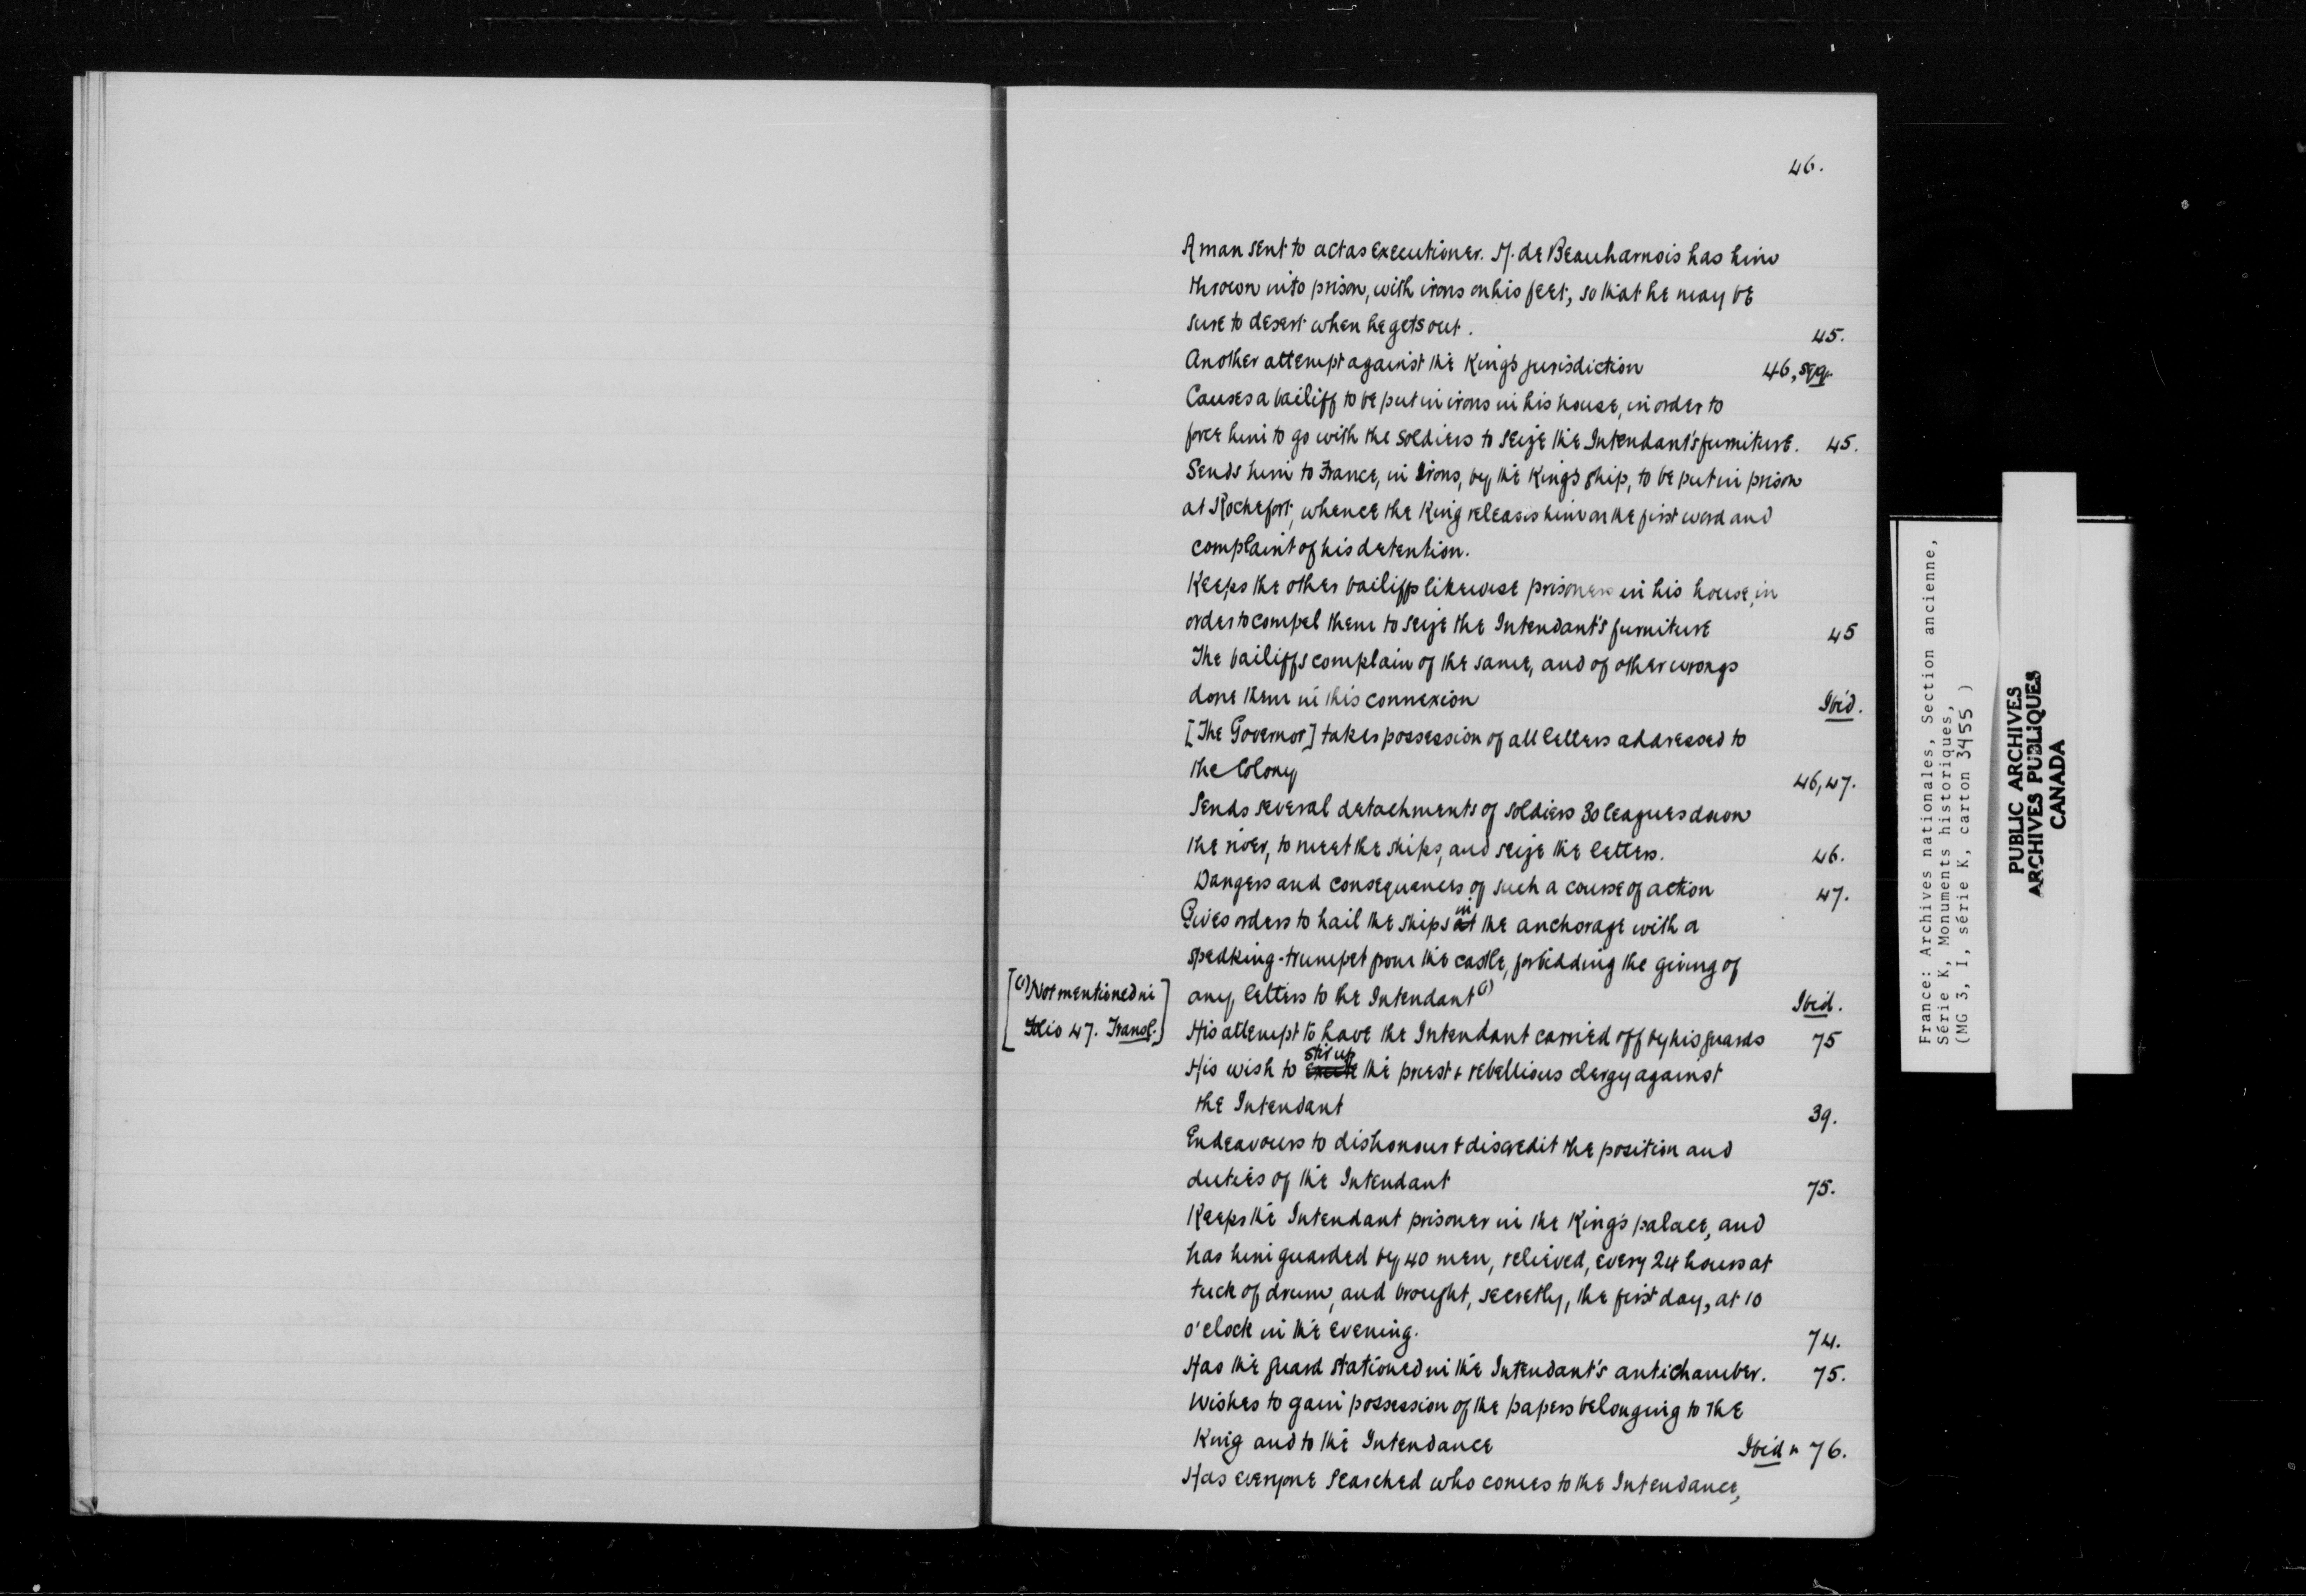 46.
A man sent to act as executioner. M. de Beauharnois has him
thrown into prison, with irons on his feet, so that he may be
sure to desert when he gets out. 45.
Another attempt against the King's jurisdiction 46, sqq.
Causes a bailiff to be put in irons in his house, in order to
force him to go with the soldiers to seize the Intendant's furniture. 45.
Sends him to France, in irons, by the King's ship, to be put in prison
at Rochefort, whence the King releases him on the first word and
complaint of his detention.
Keeps the other bailiffs likewise prisoners in his house, in
order to compel them to seize the Intendant's furniture 45
The bailiffs complain of the same, and of other wrongs
done them in this connexion Ibid.
[The Governor] takes possession of all letters addressed to
the Colony 46, 47.
Sends several detachments of soldiers 30 leagues down
the river, to meet the ships, and seize the letters. 46.
Dangers and consequences of such a course of action 47.
Gives orders to hail the ships at in the anchorage with a
speaking-trumpet from the castle, forbidding the giving of
any letters to the Intendant (1) Ibid.
[(1) Not mentioned in
Folio 47. Transl.]
His attempt to have the Intendant carried off by his guards 75
His wish to excite stir up the priest & rebellious clergy against
the Intendant 39.
Endeavours to dishonour & discredit the position and
duties of the Intendant 75.
Keeps the Intendant prisoner in the King's palace, and
has him guarded by 40 men, relieved, every 24 hours at
tuck of drum, and brought, secretly, the first day, at 10
o'clock in the evening. 74.
Has the guard stationed in the Intendant's antichamber. 75.
Wishes to gain possession of the papers belonging to the
King and to the Intendance Ibid & 76.
Has everyone searched who comes to the Intendance,
France: Archives nationales, Section ancienne,
Série K, Monuments historiques,
(MG 3, I, série K, carton 3455 )
PUBLIC ARCHIVES
ARCHIVES PUBLIQUES
CANADA